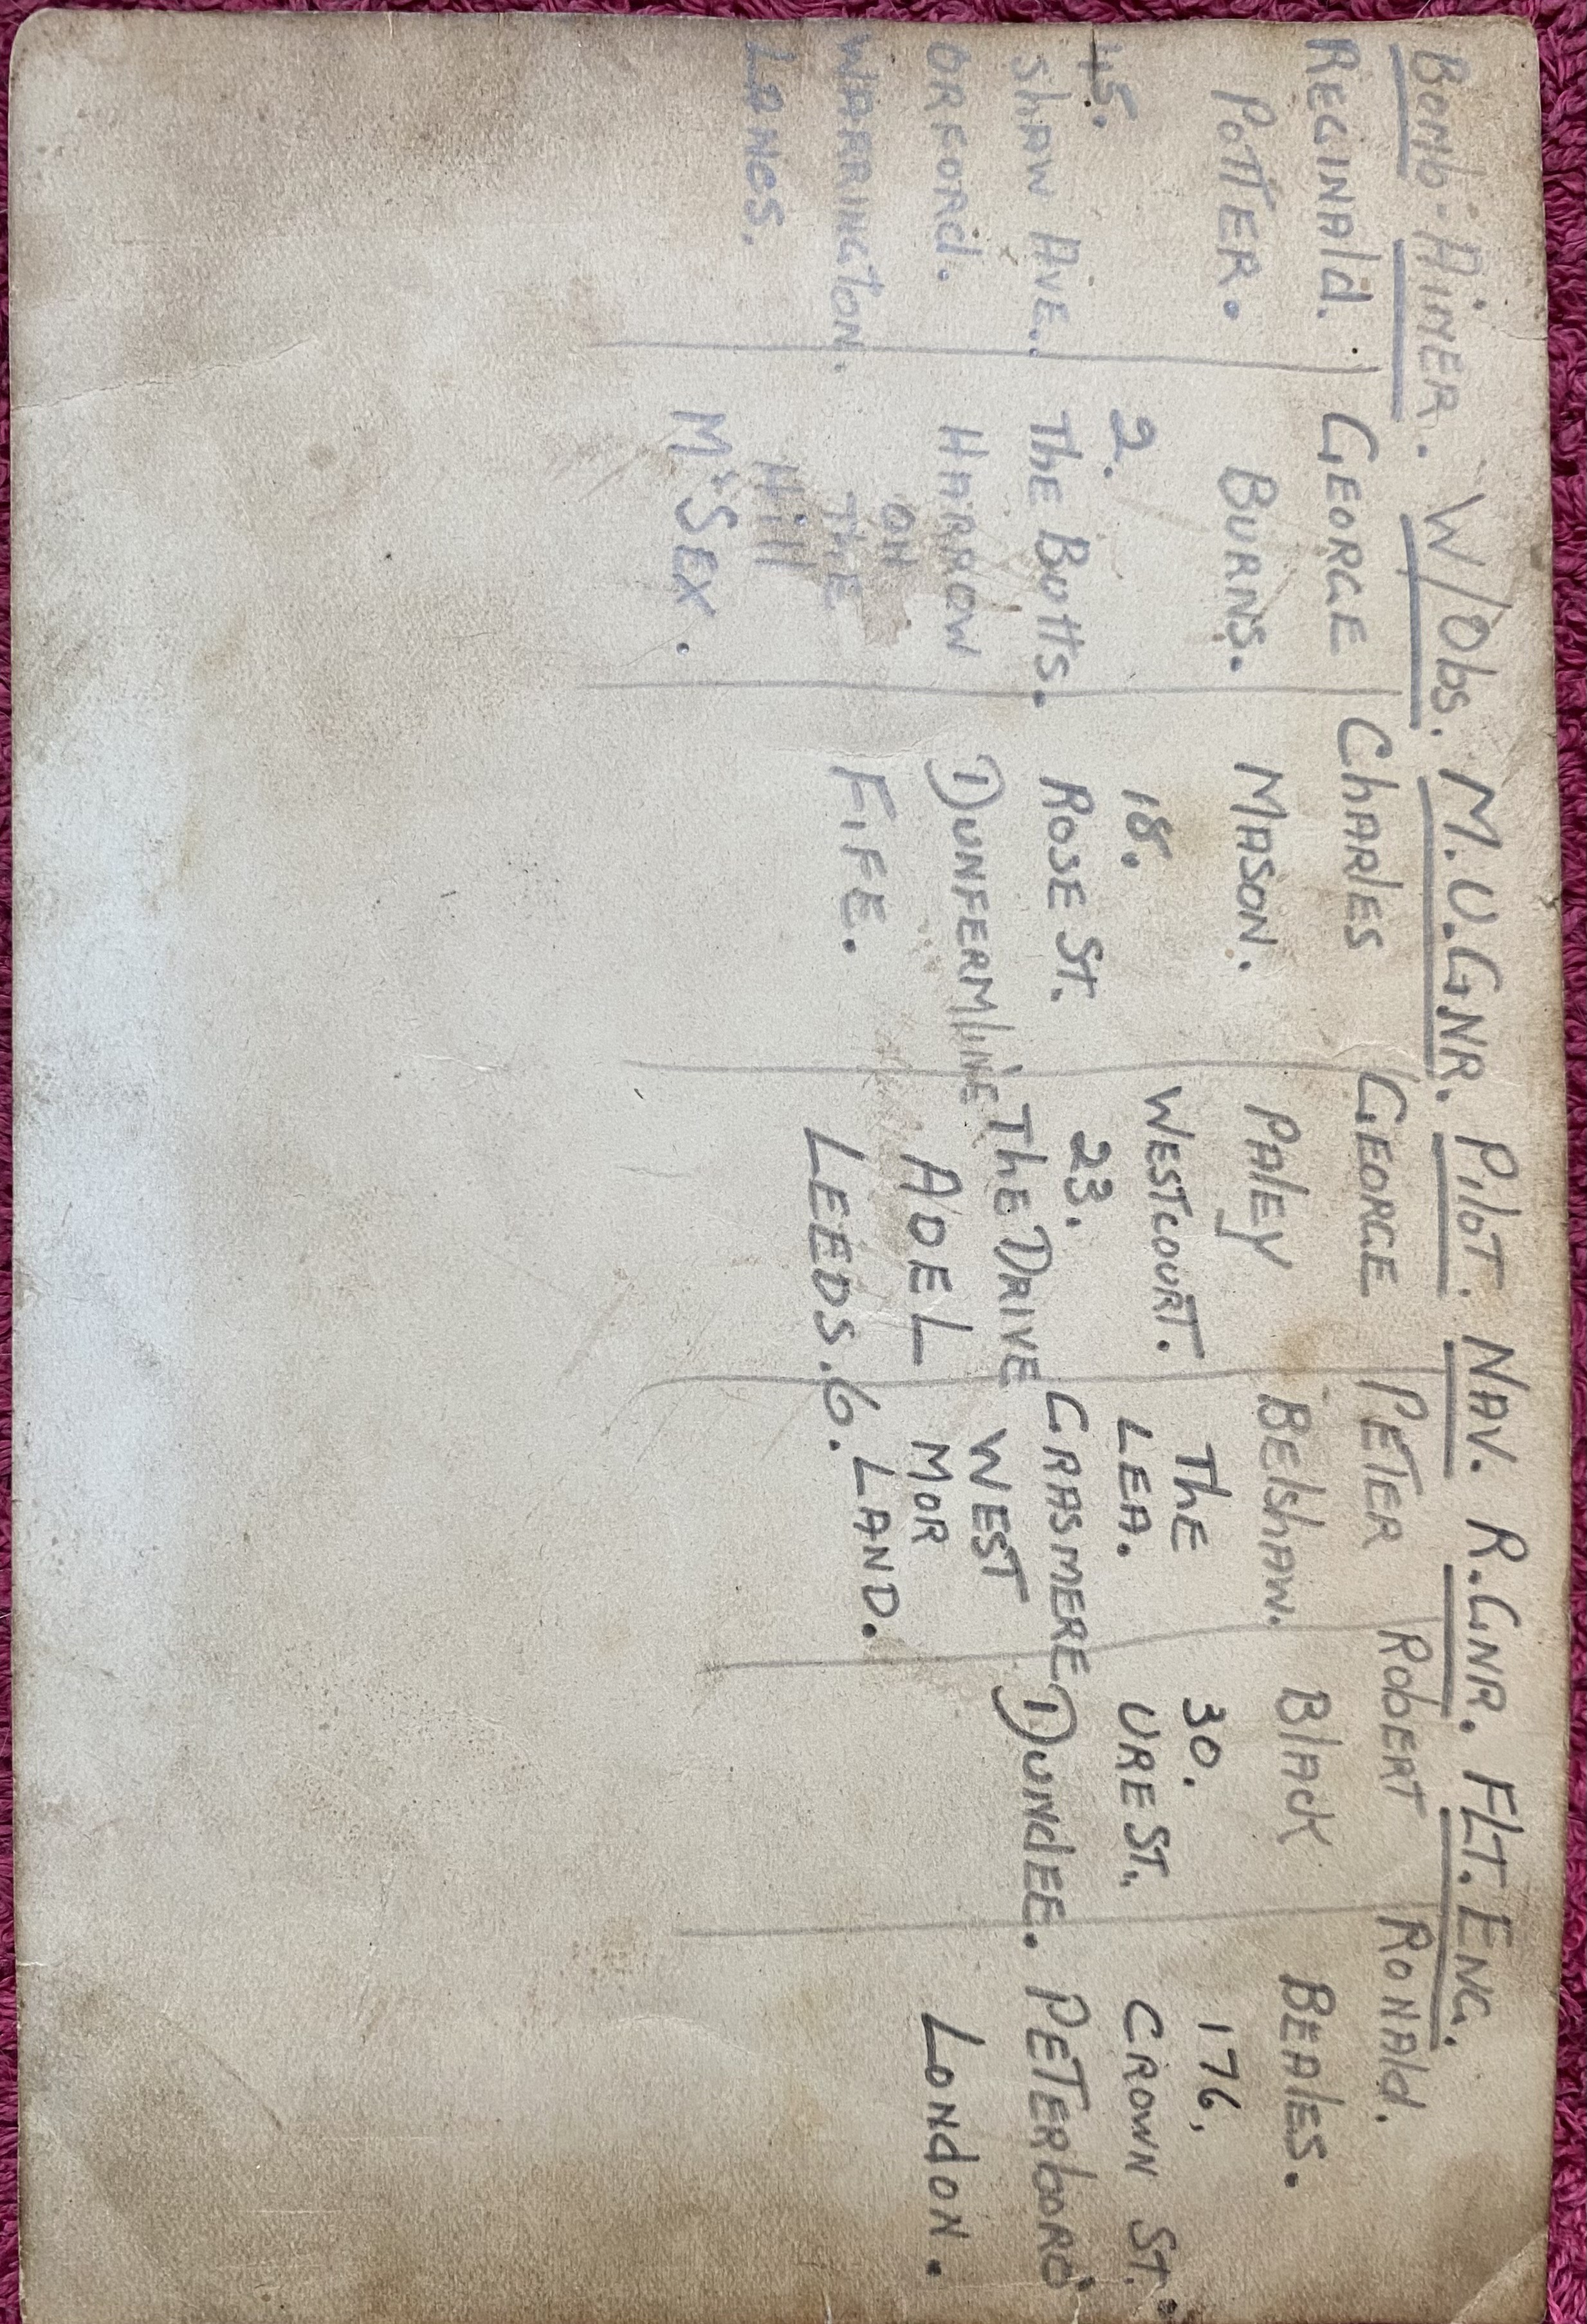 Bomb-Aimer. W/Obs. M.U.GNR. Pilot. NAV. R.GNR. FLT. ENG.
REGINAld.
POTTER.
45.
ShAW AVE.
ORFORd.
WARRINGTON.
LANCS.
GEORGE
BURNS.
2.
The Butts.
HARROW
ON
THE
Hill
M'SEX.
ChARlES
MASON.
18.
ROSE ST.
DUNFERMlINE
FiFE.
GEORGE
PAlEY
WESTCOURT.
23.
The DRIVE
ADEL
LEEDS.6.
PETER
BElshAW.
ThE
LEA.
GRASMERE
WEST
MOR
LAND.
RObERT
BlAck
30.
URE ST.
DUNdEE.
RONAld.
BEAlES.
176,
CROWN ST.
PETERboRO'
LONdON.